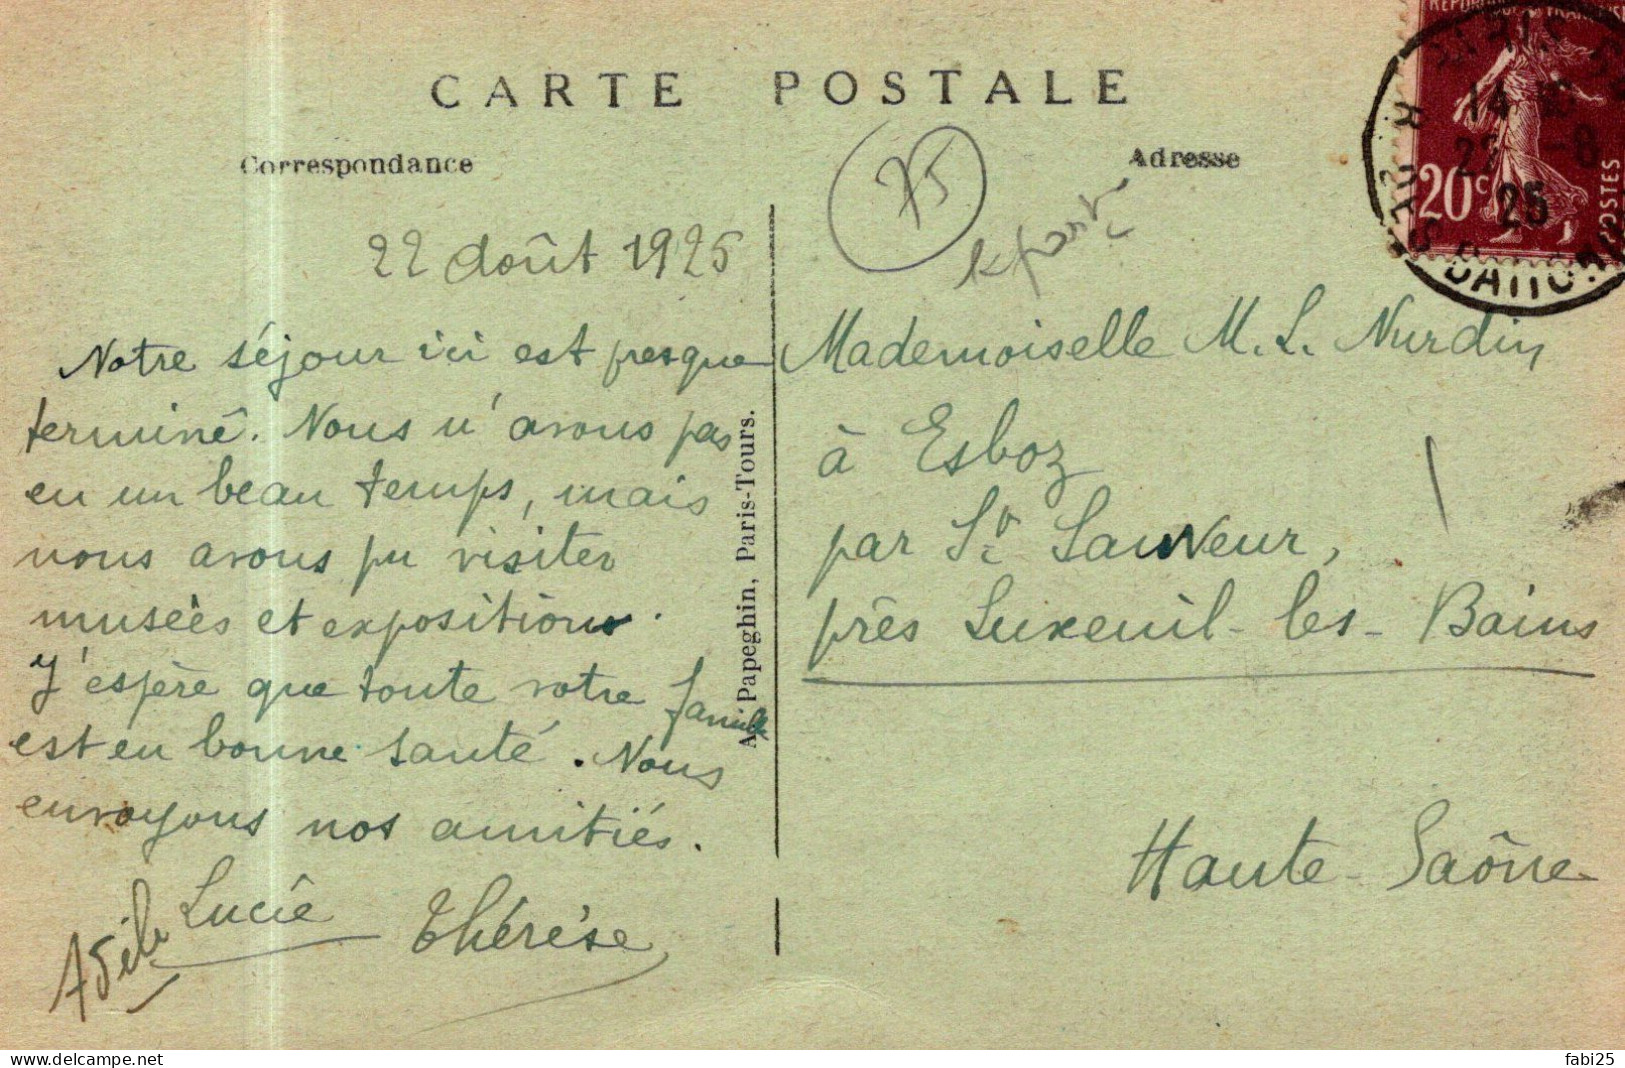 CARTE POSTALE
Correspondance
Adresse
75
22 Août 1925
Notre séjour ici est presque
terminé. Nous n'avons pas
eu un beau temps, mais
nous avons pu visiter
musées et expositions.
J'espère que toute votre famille
est en bonne santé. Nous
envoyons nos amitiés.
Adèle
Lucie
Thérèse
A. Papeghin, Paris-Tours.
Mademoiselle M. L. Nurdin
à Esboz
par St Sauveur,
près Luxeuil-les-Bains
Haute-Saône
REPUBLIQUE FRANCAISE
20c
POSTES
14
22 -8
25
R. DU
DANTON
delcampe.net
fabi25